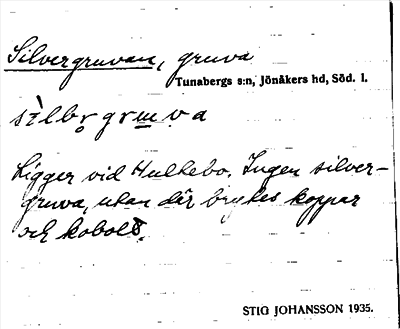 Silvergruvan, gruva
Tunabergs s:n, Jönåkers hd, Söd. l.
sìlbrgruva
Ligger vid Hultebo. Ingen silver-
gruva, utan där brytes koppar
och kobolt.
STIG JOHANSSON 1935.